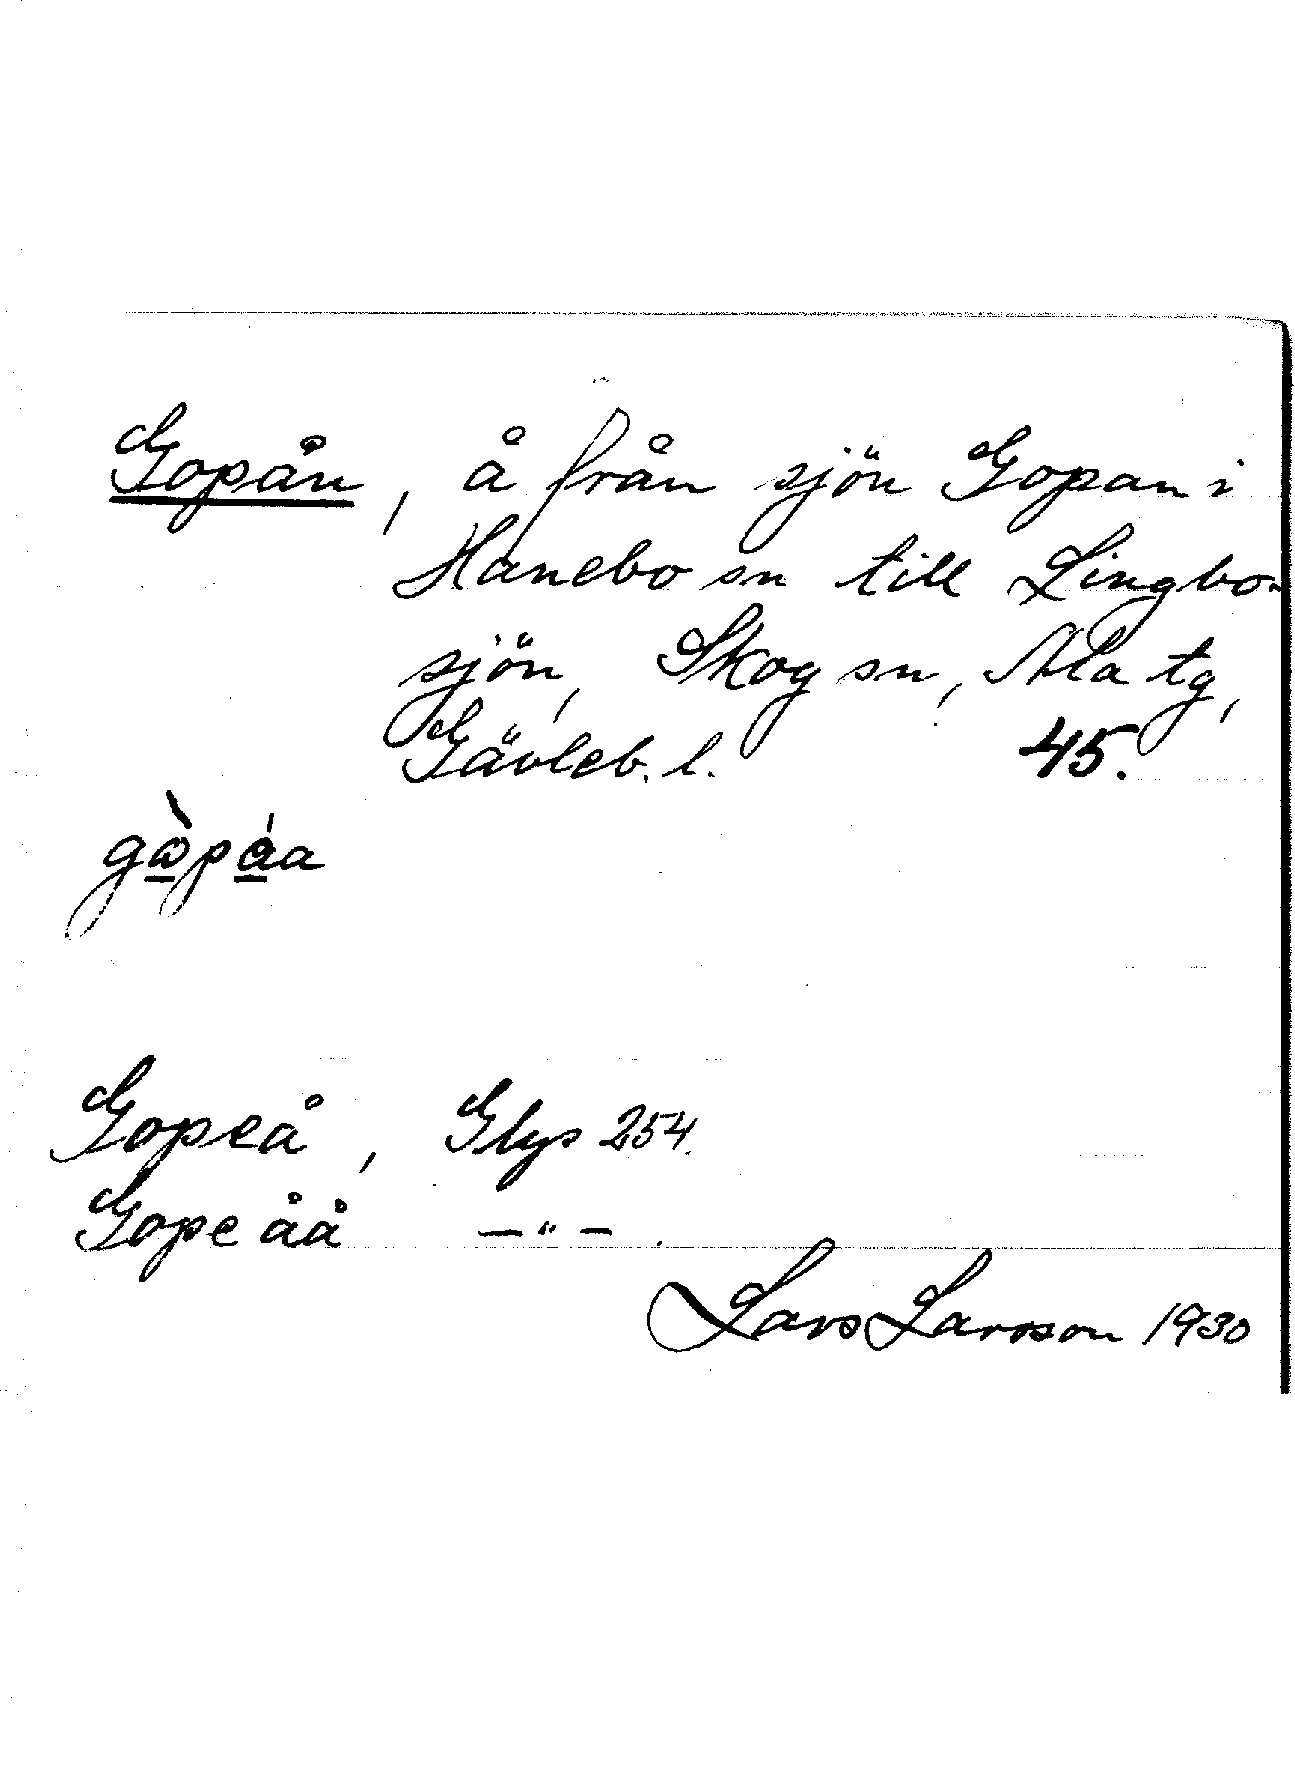 Gopån, å från sjön Gopan i
Hanebo sn till Lingbo-
sjön, Skog sn, Ala tg,
Gävleb. l. 45.
gɷ̀páa
Gopeå, Glys 254.
Gope åå —"—.
Lars Larsson 1930